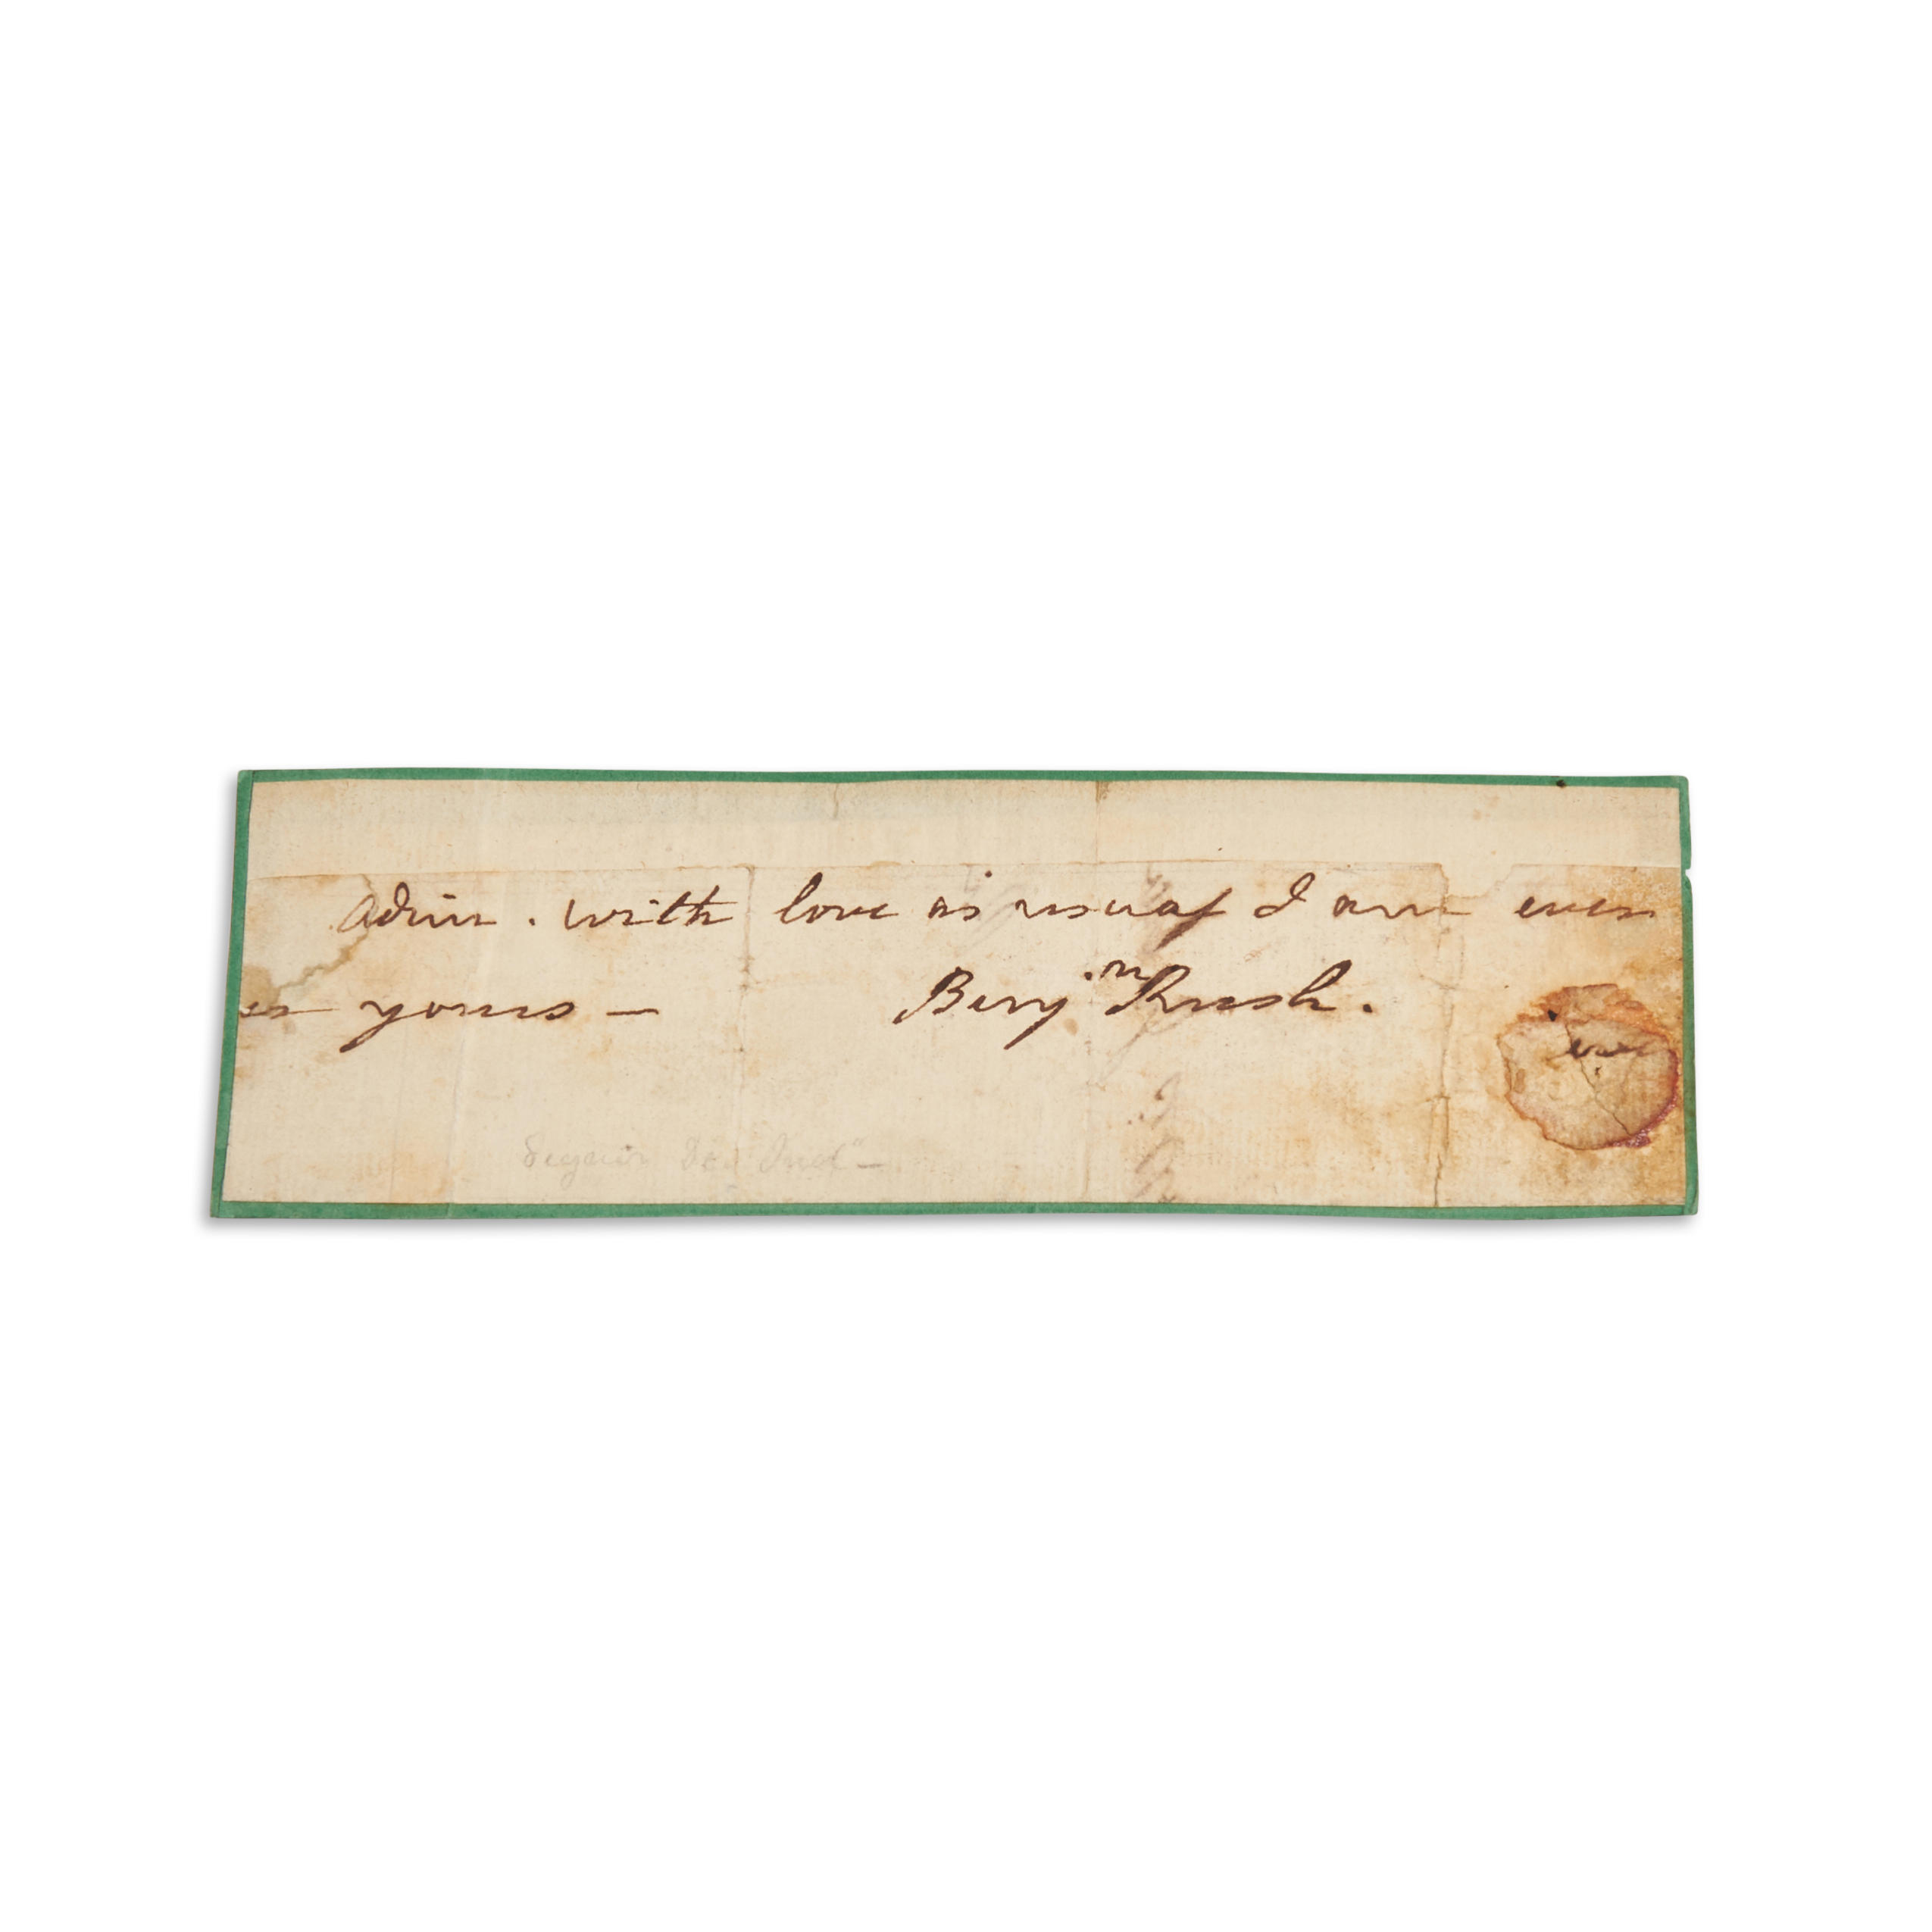 Adieu. with love as usual I am ever
yours —
Benj.n Rush.
Signer Dec. Ind" —